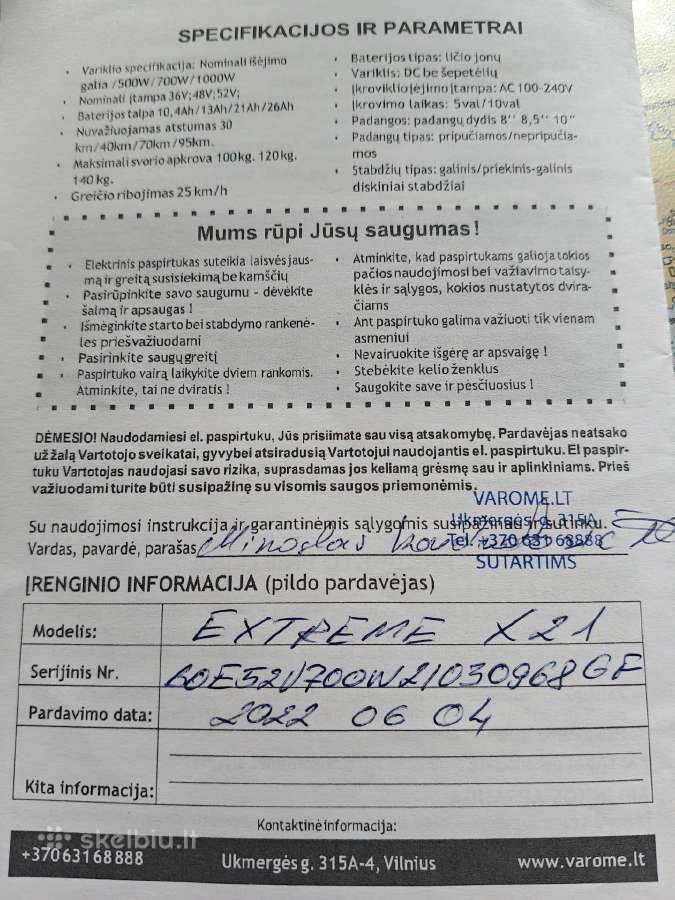 SPECIFIKACIJOS IR PARAMETRAI
Variklio specifikacija: Nominali išėjimo
galia /500W/700W/1000W
Nominali įtampa 36V;48V;52V;
Baterijos talpa 10,4Ah/13Ah/21Ah/26Ah
Nuvažiuojamas atstumas 30
km/40km/70km/95km.
Maksimali svorio apkrova 100kg. 120kg.
140kg.
Greičio ribojimas 25 km/h
Baterijos tipas: ličio jonų
Variklis: DC be šepetėlių
Įkroviklio įėjimo įtampa: AC 100-240V
Įkrovimo laikas: 5val/10val
Padangos: padangų dydis 8'' 8,5'' 10''
Padangų tipas: pripučiamos/nepripučia-
mos
Stabdžių tipas: galinis/priekinis-galinis
diskiniai stabdžiai
Mums rūpi Jūsų saugumas!
Elektrinis paspirtukas suteikia laisvės jaus-
mą ir greitą susisiekimą be kamščių
Pasirūpinkite savo saugumu - dėvėkite
šalmą ir apsaugas !
Išmėginkite starto bei stabdymo rankenė-
les prieš važiuodami
Pasirinkite saugų greitį
Paspirtuko vairą laikykite dviem rankomis.
Atminkite, tai ne dviratis !
Atminkite, kad paspirtukams galioja tokios
pačios naudojimosi bei važiavimo taisy-
klės ir sąlygos, kokios nustatytos dvira-
čiams
Ant paspirtuko galima važiuoti tik vienam
asmeniui
Nevairuokite išgėrę ar apsvaigę !
Stebėkite kelio ženklus
Saugokite save ir pėsčiuosius !
DĖMESIO! Naudodamiesi el. paspirtuku, Jūs prisiimate sau visą atsakomybę. Pardavėjas neatsako
už žalą Vartotojo sveikatai, gyvybei atsiradusią Vartotojui naudojantis el. paspirtuku. El paspir-
tuku Vartotojas naudojasi savo rizika, suprasdamas jos keliamą grėsmę sau ir aplinkiniams. Prieš
važiuodami turite būti susipažinę su visomis saugos priemonėmis.
VAROME.LT
Ukmergės g. 315A
Tel. +370 631 68888
SUTARTIMS
Su naudojimosi instrukcija ir garantinėmis sąlygomis susipažinau ir sutinku.
Vardas, pavardė, parašas Miroslav
ĮRENGINIO INFORMACIJA (pildo pardavėjas)
Modelis: EXTREME X21
Serijinis Nr. 60E52V700W21030968GF
Pardavimo data: 2022 06 04
Kita informacija:
Kontaktinė informacija:
skelbiu.lt
+37063168888 Ukmergės g. 315A-4, Vilnius www.varome.lt